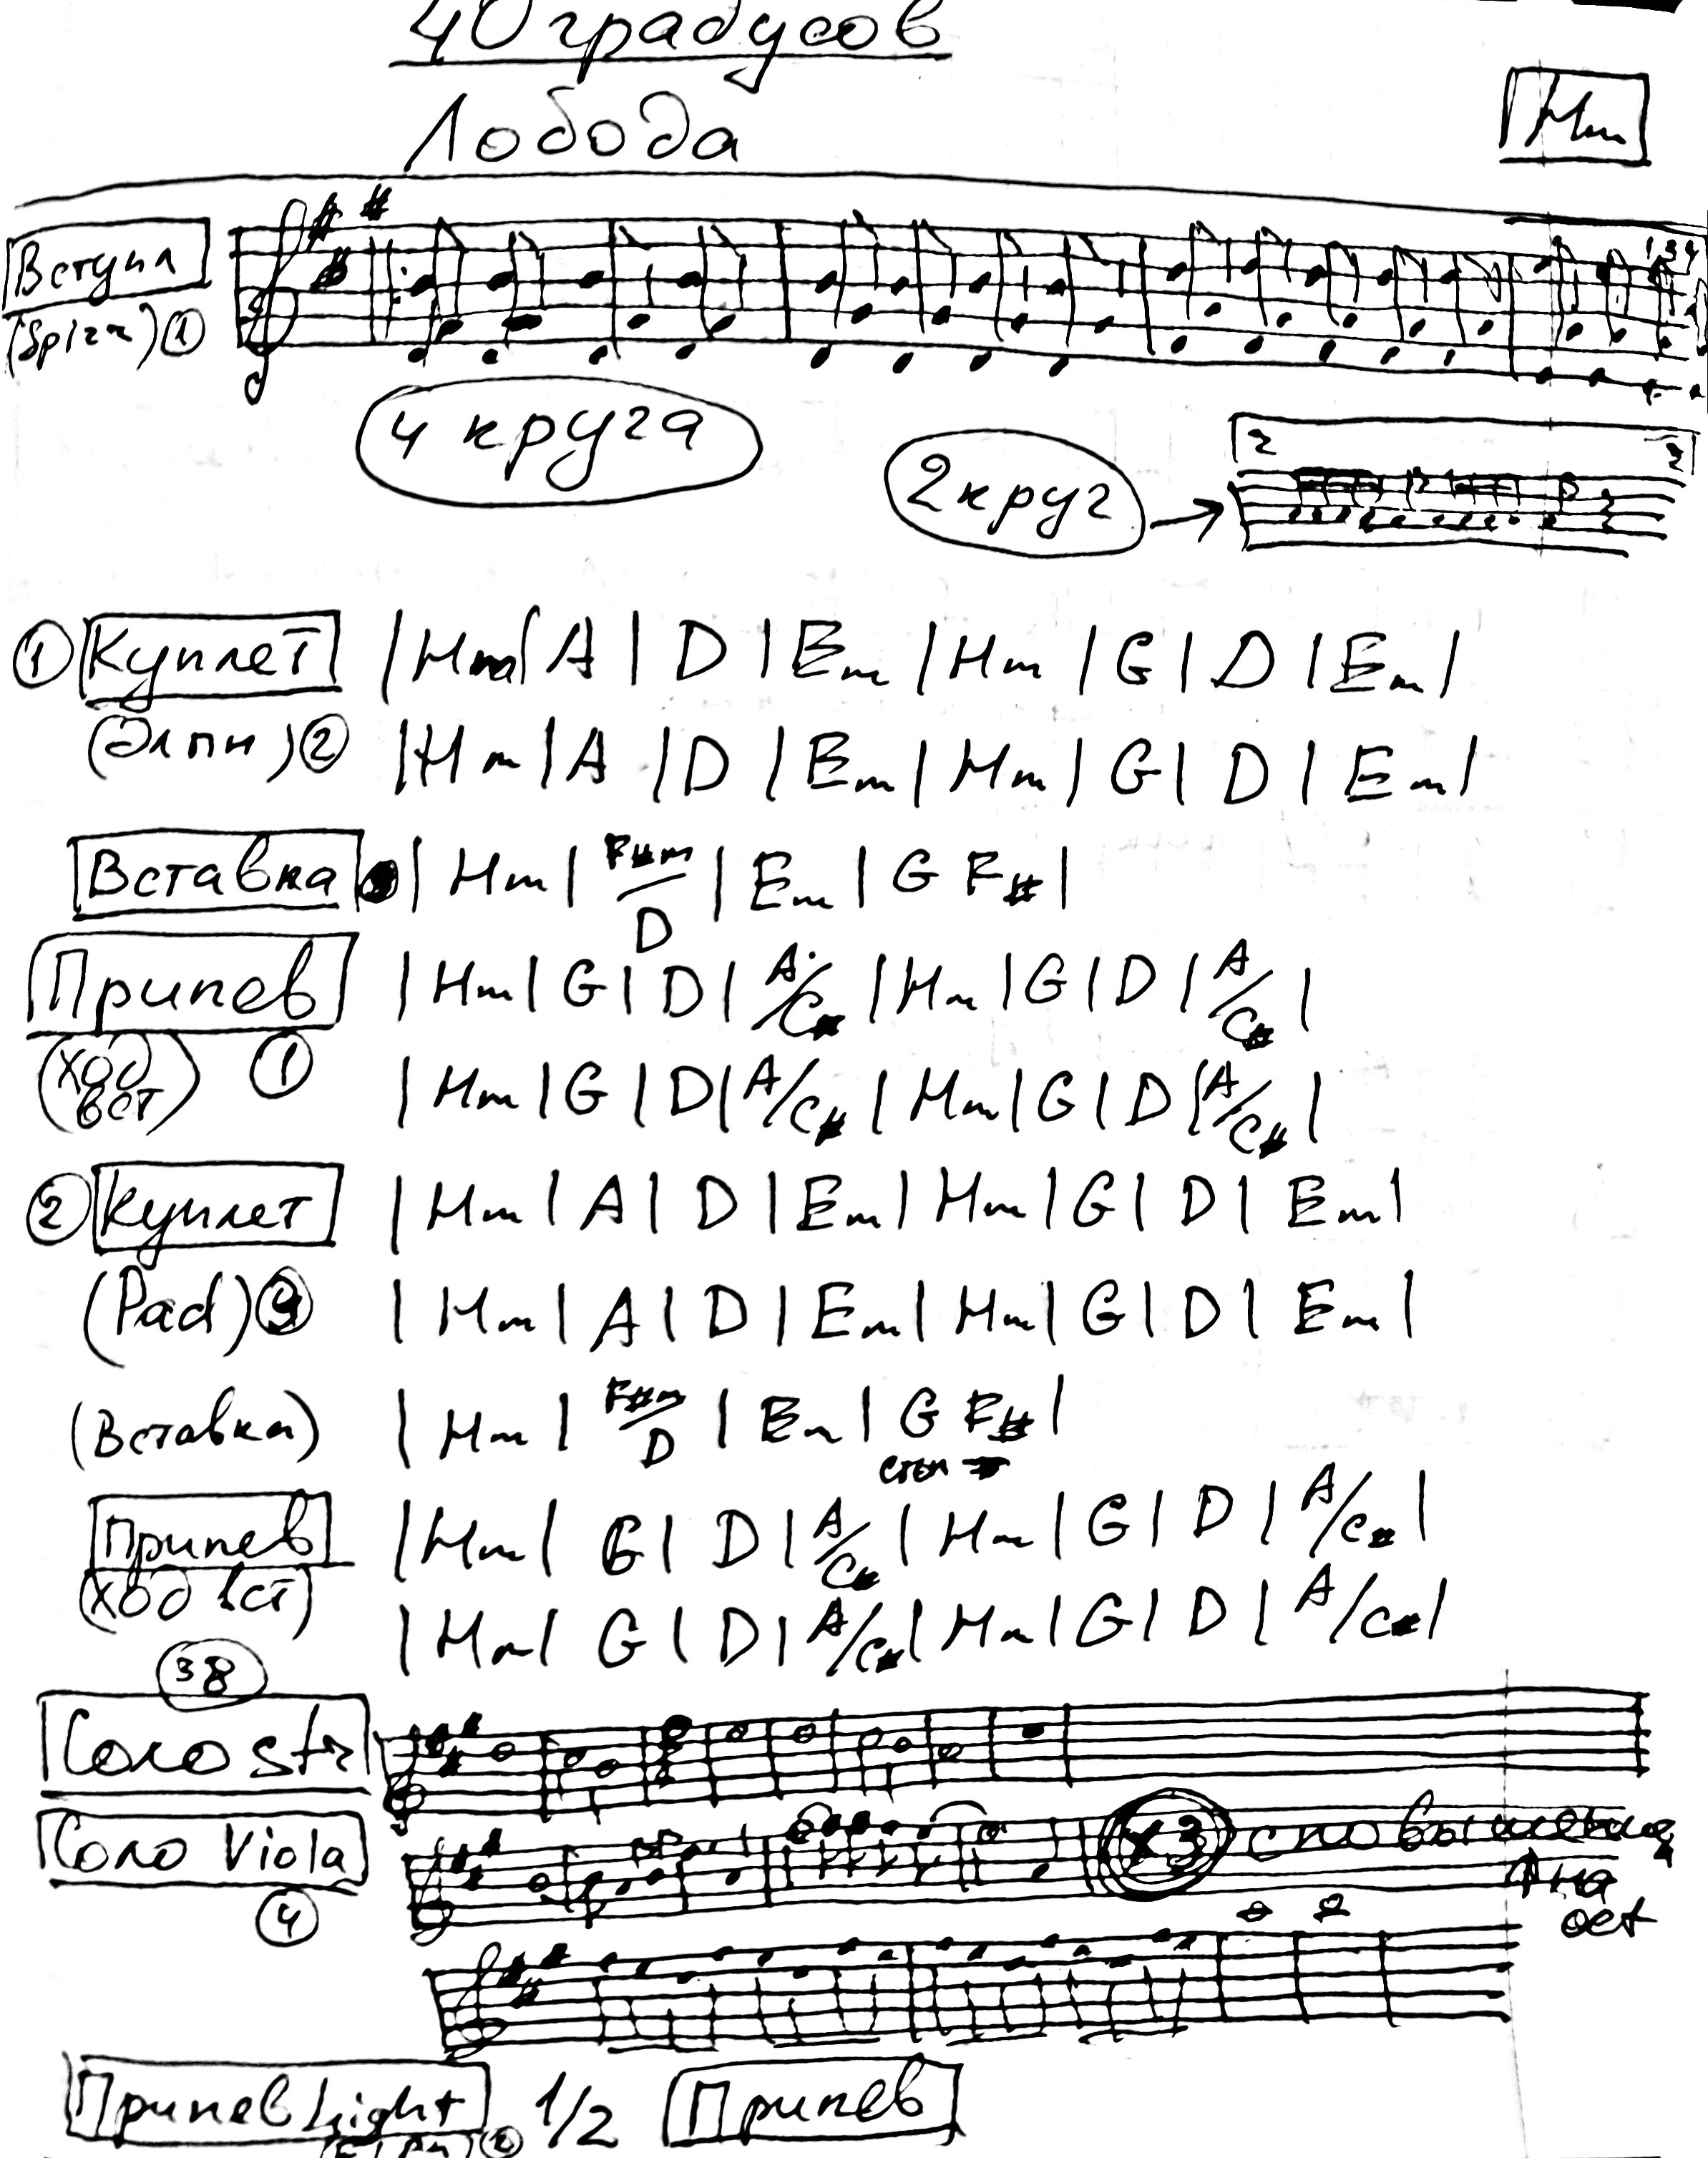 40 градусов
Лобода
Hm
Вступл
(Spizz) 1
1 3 4
4 круга
2 круг
2 2
1 Куплет | Hm | A | D | Em | Hm | G | D | Em |
(Элпн) 2 | Hm | A | D | Em | Hm | G | D | Em |
Вставка | Hm | F#m/D | Em | G F# |
Припев | Hm | G | D | A/C# | Hm | G | D | A/C# |
(ход вст) 1 | Hm | G | D | A/C# | Hm | G | D | A/C# |
2 Куплет | Hm | A | D | Em | Hm | G | D | Em |
(Pad) 3 | Hm | A | D | Em | Hm | G | D | Em |
(Вставка) | Hm | F#m/D | Em | G F# |
стоп
Припев | Hm | G | D | A/C# | Hm | G | D | A/C# |
(ход вст) | Hm | G | D | A/C# | Hm | G | D | A/C# |
38
Соло str
Соло Viola x3 с повышением
4 на oct
Припев Light 1/2 Припев